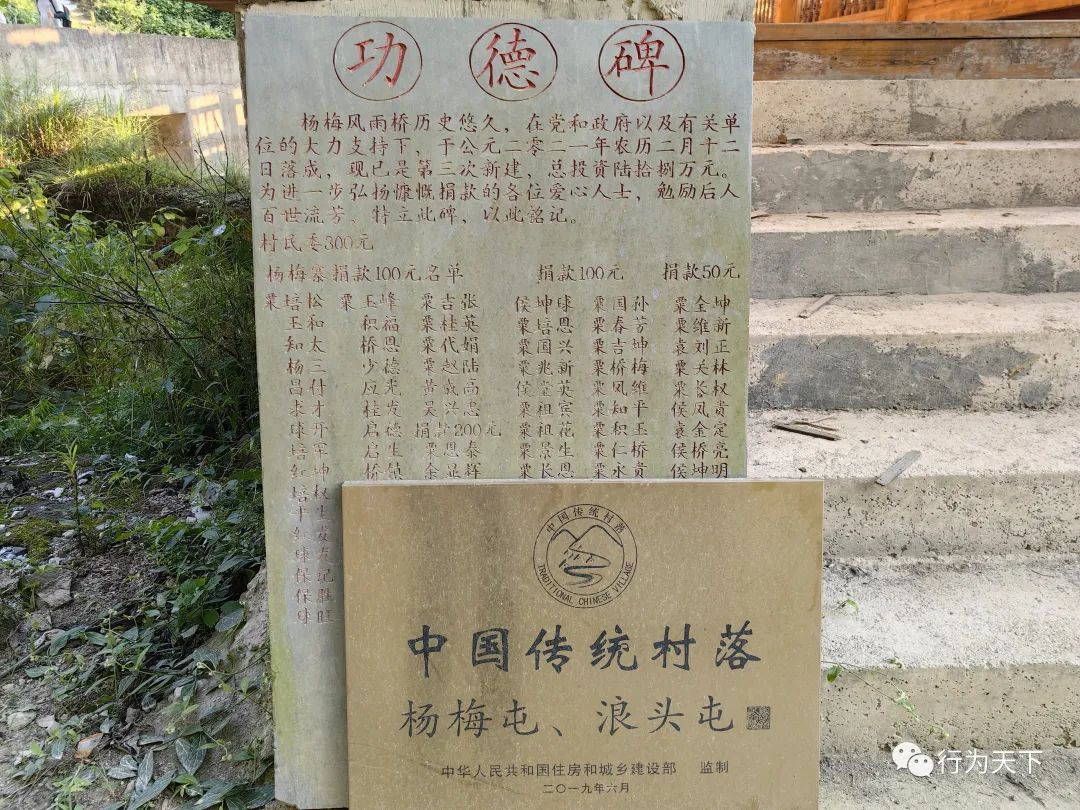 功德碑
杨梅风雨桥历史悠久，在党和政府以及有关单
位的大力支持下，于公元二零二一年农历二月十二
日落成，现已是第三次新建，总投资陆拾捌万元。
为进一步弘扬慷慨捐款的各位爱心人士，勉励后人
百世流芳，特立此碑，以此铭记。
村民委300元
杨梅寨捐款100元名单 捐款100元 捐款50元
粟培松 粟玉峰 粟吉张 侯坤球 粟国孙 粟全坤
玉和 积福 粟桂英 粟培恩 粟春芳 粟维新
知太 桥恩 粟代娟 粟国兴 粟吉坤 袁刘正
杨三 少德 粟赵陆 粟兆新 粟桥梅 粟天林
昌什 应光 黄成高 侯堂英 粟凤维 粟长权
求才 桂发 吴兴忠 粟祖宾 粟知平 侯凤贵
球开 启德 捐款200元 粟祖花 粟积玉 袁金定
培军 启生 粟恩泰 粟景生 粟仁桥 侯桥亮
坤 桥 余显辉 粟长恩 粟水贵 侯坤明
培权
平生
发
球发
保记
保胜
球旺
中国传统村落
TRADITIONAL CHINESE VILLAGE
中国传统村落
杨梅屯、浪头屯
中华人民共和国住房和城乡建设部 监制
二〇一九年六月
行为天下